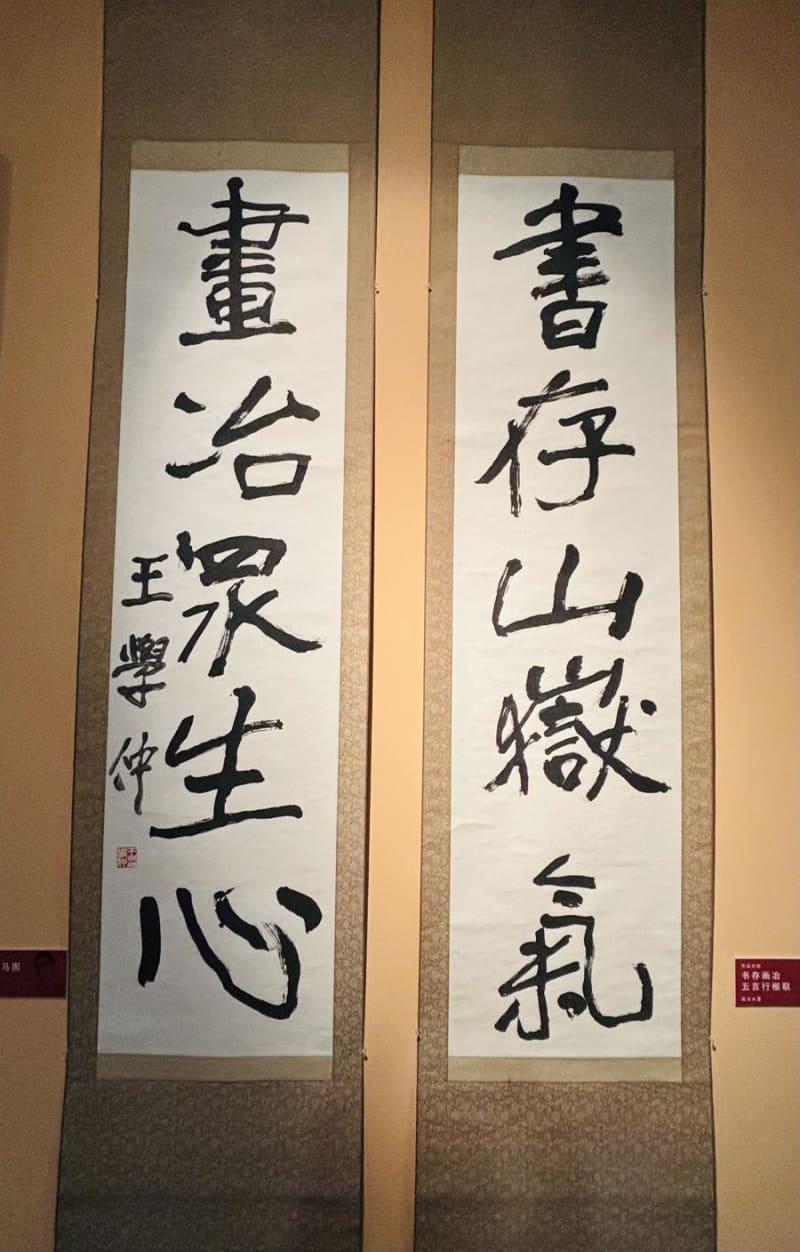 書存山嶽氣
畫冶眾生心
王學仲
书存画冶
五言行楷联
马图